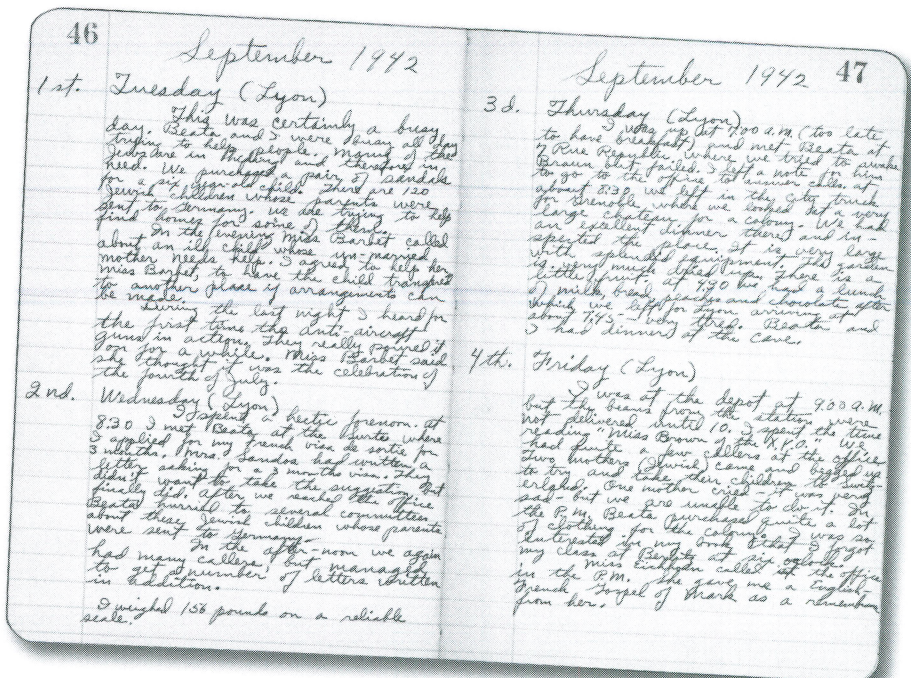 46
September 1942
1st. Tuesday (Lyon)
This was certainly a busy
day. Beata and I were busy all day
trying to help people. Many of the
Jews are in hiding and therefore in
need. We purchased a pair of sandals
for a six year-old child. There are 120
Jewish children whose parents were
sent to Germany. We are trying to help
find homes for some of them.
In the evening Miss Barbet called
about an ill child whose un-married
mother needs help. I agreed to help her,
Miss Barbet, to have the child transfered
to another place if arrangements can
be made.
During the last night I heard for
the first time the anti-aircraft
guns in action. They really poured it
on for a while. Miss Barbet said
she thought it was the celebration of
the fourth of July.
2nd. Wednesday (Lyon)
I spent a hectic forenoon. At
8:30 I met Beata at the Surté where
I applied for my French visa de sortie for
3 months. Mrs. Sandos had written a
letter asking for a 3 month visa. They
didn't want to take the but
finally did. After we reached the office
Beata hurried to several committees
about these Jewish children whose parents
were sent to Germany.
In the after-noon we again
had many callers, but managed
to get a number of letters written
in addition.
I weighed 156 pounds on a reliable
scale.
September 1942 47
3d. Thursday (Lyon)
I was up at 7:00 a.m. (too late
to have breakfast) and met Beata at
7 Rue Republic, where we tried to awake
Braun but failed. I left a note for him
to go to the office to answer calls. At
about 8:30 we left in the city truck
for Grenoble where we looked at a very
large chateau for a colony. We had
an excellent dinner there, and in-
spected the place. It is very large
with splendid equipment. The garden
is very much dried up. There is a
little fruit. At 4:30 we had a lunch
of milk, bread, peaches and chocolate after
which we left for Lyon arriving at
about 7:45 - very tired. Beata and
I had dinner at the cave.
4th. Friday (Lyon)
I was at the depot at 9:00 a.m.
but the beans from the station were
not delivered until 10. I spent the time
reading "Miss Brown of the X.Y.O." We
had quite a few callers at the office
Two mothers (Jewish) came and begged us
to try and take their children to Switz-
erland. One mother cried - it was very
sad - but we are unable to do it. In
the P.M. Beata purchased quite a lot
of clothing for the colonie. I was so
interested in my book that I forgot
my class at Berlitz at six oclock.
Miss called at the office
in the P.M. She gave me a English-
French Gospel of Mark as a
from her.